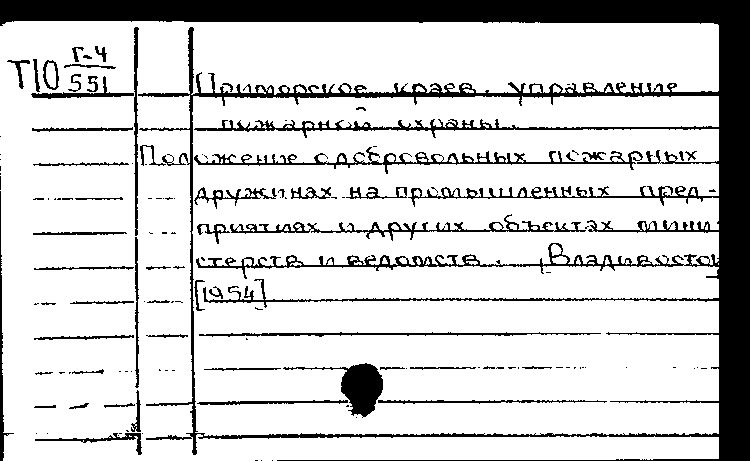 Т10 Г-4
551
Приморское краев. управление
пожарной охраны.
Положение о добровольных пожарных
дружинах на промышленных пред-
приятиях и других объектах мини-
стерств и ведомств. Владивосток
[1954]